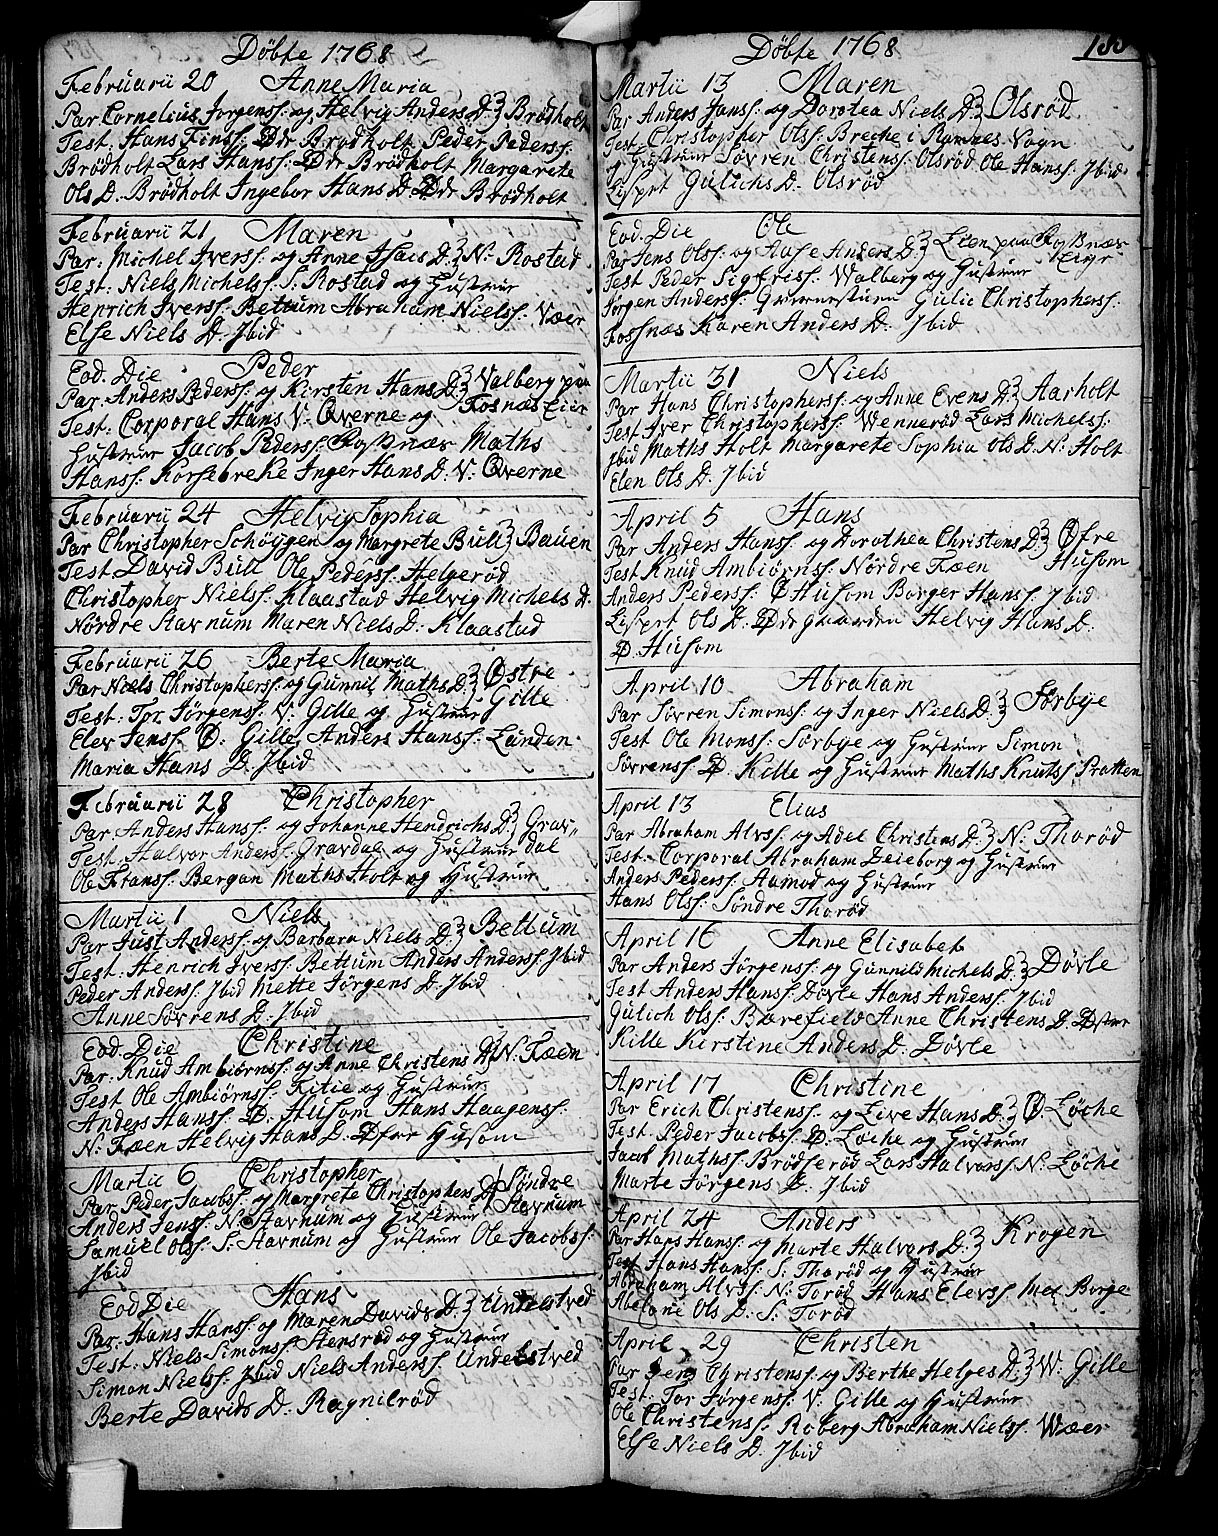 Döbte 1768
Februarii 20 Anne Maria
Par Cornelius Jorgenss: og Helvig Anders D. Brödholt
Test. Hans Finss. Ddr Brödholt Peder Pederss:
Brödholt Lars Hanss: Ddr Brödholt Margarete
Ols D. Brödholt Ingebor Hans D. Ddr Brödholt
Februarii 21 Maren
Par: Michel Iverss: og Anne Isacs D. N: Rostad
Test: Niels Michelss. S. Rostad og Hustrue
Henrich Iverss: Bettum Abraham Nielss: Væer
Else Niels D. Jbid
Eod. Die Peder
Par: Anders Pederss: og Kirsten Hans D. Valberg paa
Fosnæs Eier
Test: Corporal Hans V. Qverne og
Hustrue Jacob Pederss: Fossnæs Maths
Hanss: Korsebreke Inger Hans D. V: Qverne
Februarii 24 Helvig Sophia
Par Christopher Schöygen og Margrete Bull Bauen
Test. David Bull Ole Pederss: Helgeröd
Christopher Nielss: Klaastad Helvig Michels D.
Nördre Stavnum Maren Niels D. Klaastad
Februarii 26 Berte Maria
Par Niels Christopherss: og Gunnil Maths D. Østre
Gille
Test: Tor Jörgenss: V: Gille og Hustrue
Elev Jenss: Ø. Gille Anders Hanss: Lunden
Maria Hans D. Jbid
Februarii 28 Christopher
Par Anders Hanss: og Johanne Hendrichs D. Grav,,
dal
Test. Halvor Anderss: Gravdal og Hustrue
Ole Franss: Bergan Maths Holt og Hustrue
Martii 1 Niels
Par Just Anderss: og Barbara Niels D. Bettum
Test: Henrich Iverss: Bettum Anders Anderss. Jbid
Peder Anderss: Jbid Mette Jörgens D. Jbid
Anne Sövrens D. Jbid
Eod. Die Christine
Par: Knud Ambiörnss: og Anne Christens D. N: Fæen
Test Ole Ambiörnss: Fitie og Hustrue
Anders Hanss: Ø. Husom Hans Haagenss:
N: Fæen Helvig Hans D. Øfre Husom
Martii 6 Christopher
Par. Peder Jacobss: og Margrete Christophers D. Söndre
Stavnum
Anders Jenss: N: Stavnum og Hustrue
Samuel Olss: S: Stavnum og Hustrue Ole Jacobss:
Jbid
Eod Die Hans
Par. Hans Hanss: og Maren Davids D. Undelstved
Test: Niels Simonss: Stensröd og Hustrue
Simon Nielss: Jbid Niels Anderss: Undelstved
Berte Davids D. Ragnilröd
Döbte 1768
Martii 13 Maren
Par Anders Janss. og Dorotea Niels D. Olsröd
Test Christopher Olss Breche i Ramnes Sogn
og Hustrue Sövren Christenss: Olsröd Ole Hanss: Jbid
Lispet Gulichs D. Olsröd
Eod. Die Ole
Par Jens Olss: og Aase Anders D. Lien paa Fossnæs
Eigr
Test Peder Sigfriss: Walberg og Hustrue
Jörgen Anderss: Gulic Christopherss:
Fossnæs Karen Anders D. Jbid
Martii 31 Niels
Par Hans Christopherss: og Anne Evens D. Aarholt
Test Iver Christopherss: Wenneröd Lars Michelss:
Jbid Maths Holt Margarete Sophia Ols D. N: Holt
Elen Ols D. Jbid
April 5 Hans
Par Anders Hanss: og Dorothea Christens D. Øfre
Husom
Test Knud Ambiörnss: Nördre Fæen
Anders Pederss: Ø Husom Borger Hanss: Jbid
Lispet Ols D. Helvig Hans D.
Ø. Husom
April 10 Abraham
Par Sövren Simonss: og Inger Niels D. Sörbye
Test Ole Monss: Sörbye og Hustrue Simon
Sövrenss Ø. Kille og Hustrue Maths Knutss Pratten
April 13 Elias
Par Abraham Alvss: og Adel Christens D. N: Thoröd
Test. Corporal Abraham Leieborg og Hustrue
Anders Pederss: Aamod og Hustrue
Hans Olss: Söndre Thoröd
April 16 Anne Elisabet
Par Anders Jörgenss: og Gunnild Michels D. Dövle
Test Anders Hanss: Dövle Hans Anderss: Jbid
Gulich Olss: Barefield Anne Christens D. Øster
Kille Kirstine Anders D. Dövle
April 17 Christine
Par Erich Christenss: og Live Hans D. Ø. Löche
Test. Peder Jacobss: Ø. Löche og Hustrue
Jacob Mathss: Brödseröd Lars Halvorss: N: Löche
Marte Jörgens D. Jbid
April 24 Anders
Par Hans Hanss: og Marte Halvors D. Krogen
Test Hans Hanss: S: Thoröd og Hustrue
Abraham Alvss: N: Toröd Hans Elevss: Met Borge
Abelone Ols D. S: Toröd
April 29 Christen
Par Jens Christenss: og Berthe Helges D. W: Gille
Test: Tor Jörgenss: V: Gille og Hustrue
Ole Christenss: Roberg Abraham Nielss: Wæer
Else Niels D. Jbid